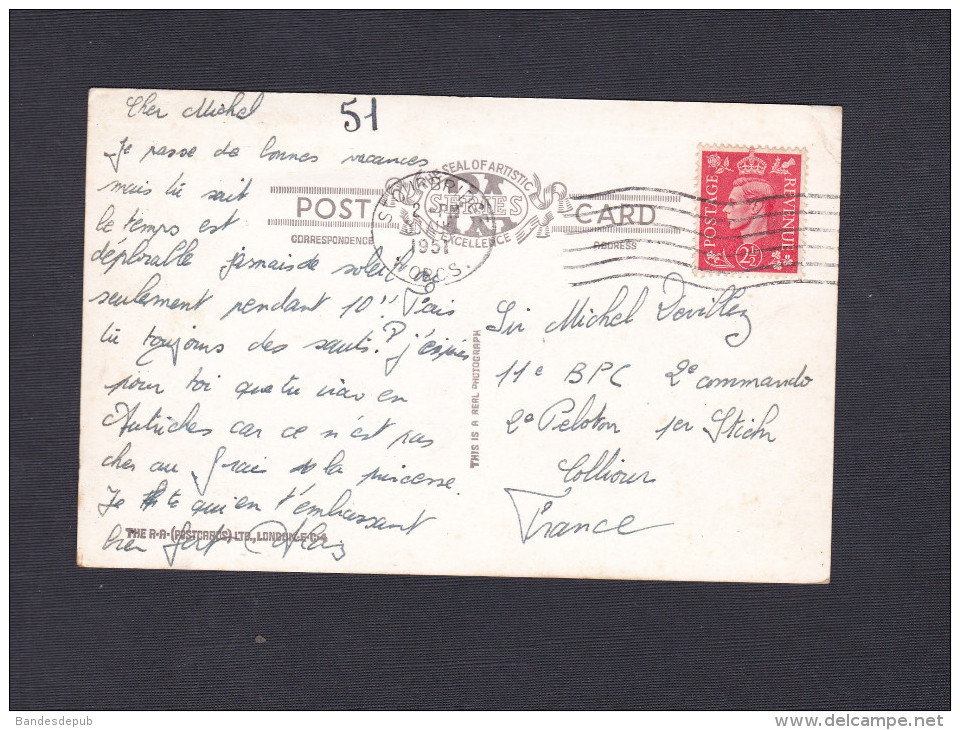 Cher Michel
51
Je passe de bonnes vacances
mais tu sait
le temps est
déplorable jamais de soleil
seulement pendant 10'' Fais
tu toujours des sauts? j'espères
pour toi que tu iras en
Autriches car ce n'est pas
cher au frais de la princesse.
Je te qui en t'embrassant
bien fort
SEAL OF ARTISTIC
SERIES
EXCELLENCE
POST CARD
CORRESPONDENCE ADDRESS
2 PM
1951
WORCS.
POSTAGE REVENUE
2½
Sir Michel Devillez
11e BPC 2e commando
2e Peloton 1er Stick
Collioure
France
THIS IS A REAL PHOTOGRAPH
THE R.A. (POSTCARDS) LTD., LONDON.E.C.4
Bandesdepub
www.delcampe.net